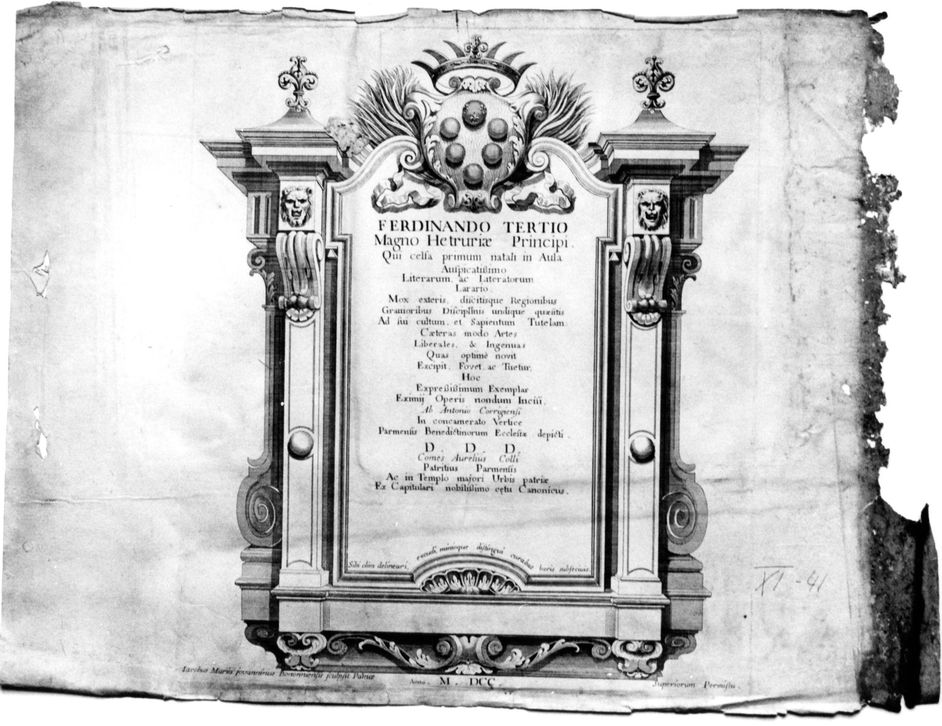 FERDINANDO TERTIO
Magno Hetruriæ Principi.
Qui celsa primum natali in Aula
Auspicatissimo
Literarum, ac Literatorum
Larario.
Mox exteris, discitisque Regionibus
Gravioribus Disciplinis undique quæsitis
Ad sui cultum, et Sapientum Tutelam
Cæteras modo Artes
Liberales, & Ingenuas
Quas optimè novit
Excipit, Fovet, ac Tuetur,
Hoc
Expressissimum Exemplar
Eximij Operis nondum Incisi,
Ab Antonio Corrigiensi
In concamerato Vertice
Parmensis Benedictinorum Ecclesiæ depicti.
D. D. D.
Comes Aurelius Colli
Patritius Parmensis
Ac in Templo majori Urbis patriæ
Ex Capitulari nobilissimo cętu Canonicus.
Sibi olim delineari, excudi, minioque distingui curabus
XI-41
Jacobus Maria Jovanninus Bononiensis sculpsit Parmæ
Anno. M. DCC.
Superiorum Permissu.